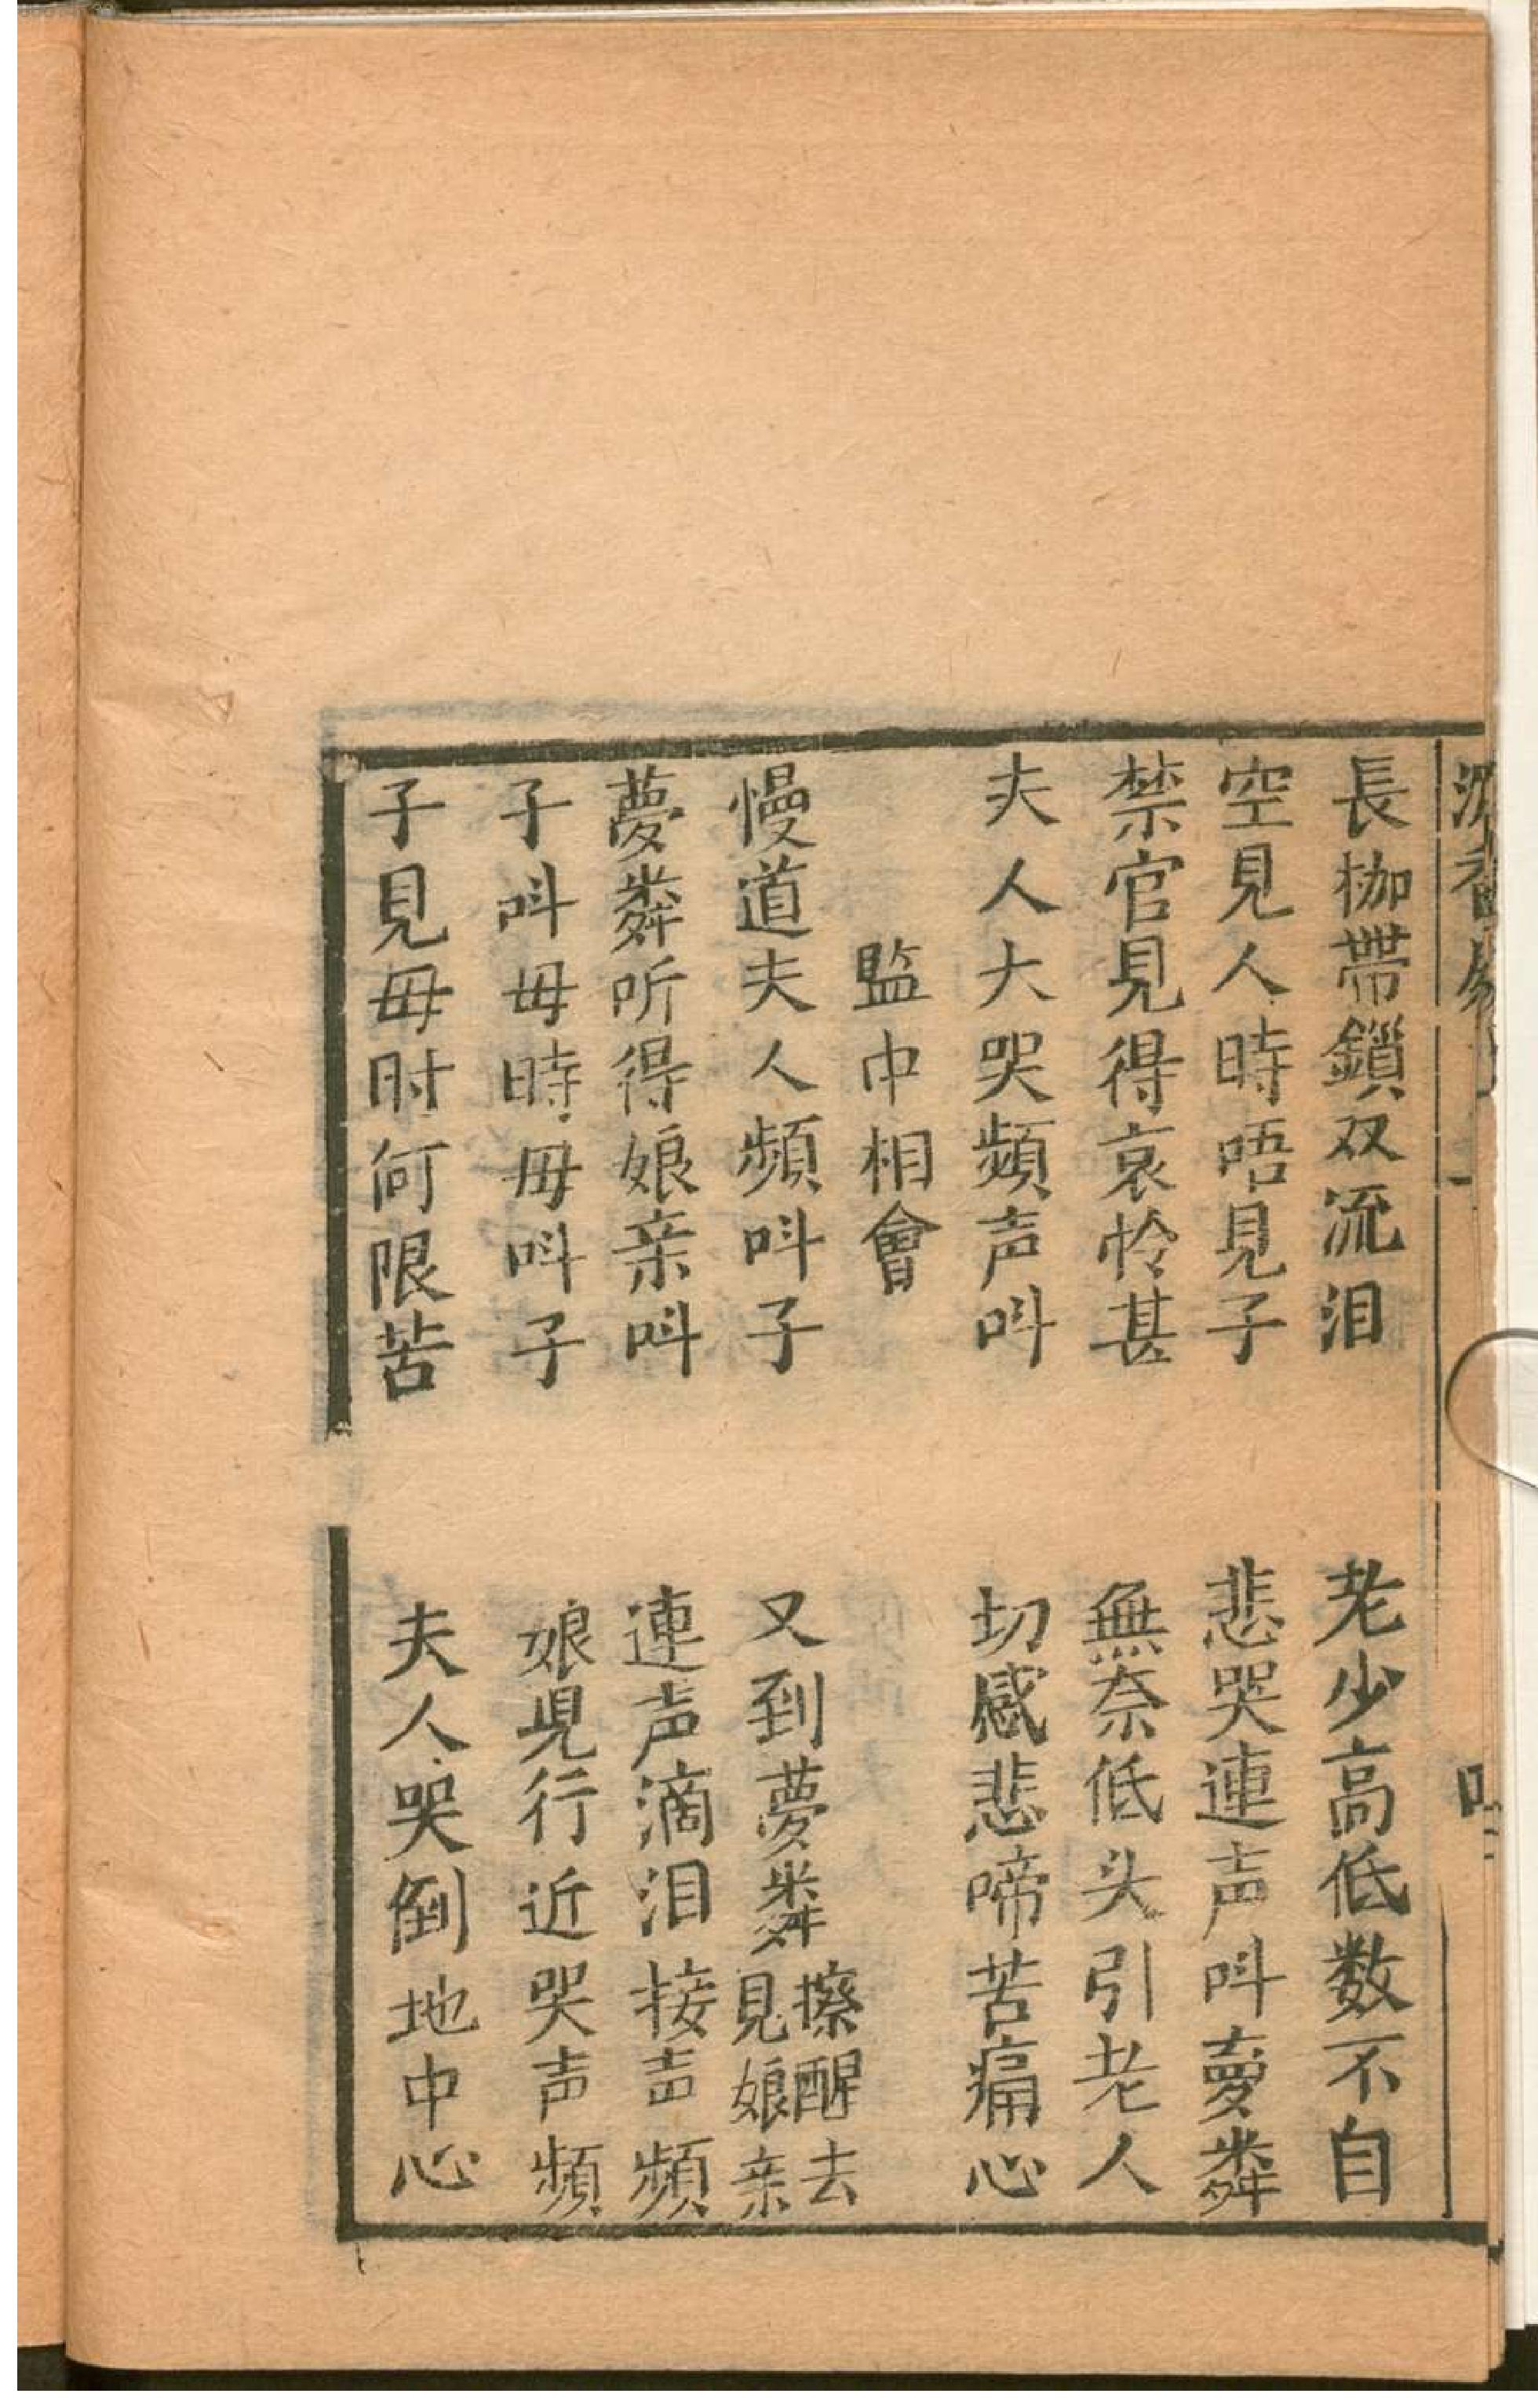 長枷帶鎖双流泪　老少高低数不自
空見人時唔見子　悲哭連声呌夢粦
禁官見得哀怜甚　無奈低头引老人
夫人大哭頻声呌　切感悲啼苦痛心
監中相會
慢道夫人頻呌子　又到夢粦擦醒去見娘亲
夢粦所得娘亲呌　連声滴泪接声頻
子呌毋時毋呌子　娘児行近哭声頻
子見毋时何限苦　夫人哭倒地中心